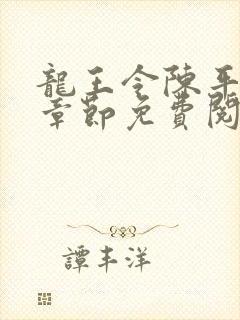 龍王令陳平
章節免費閱
譚丰洋